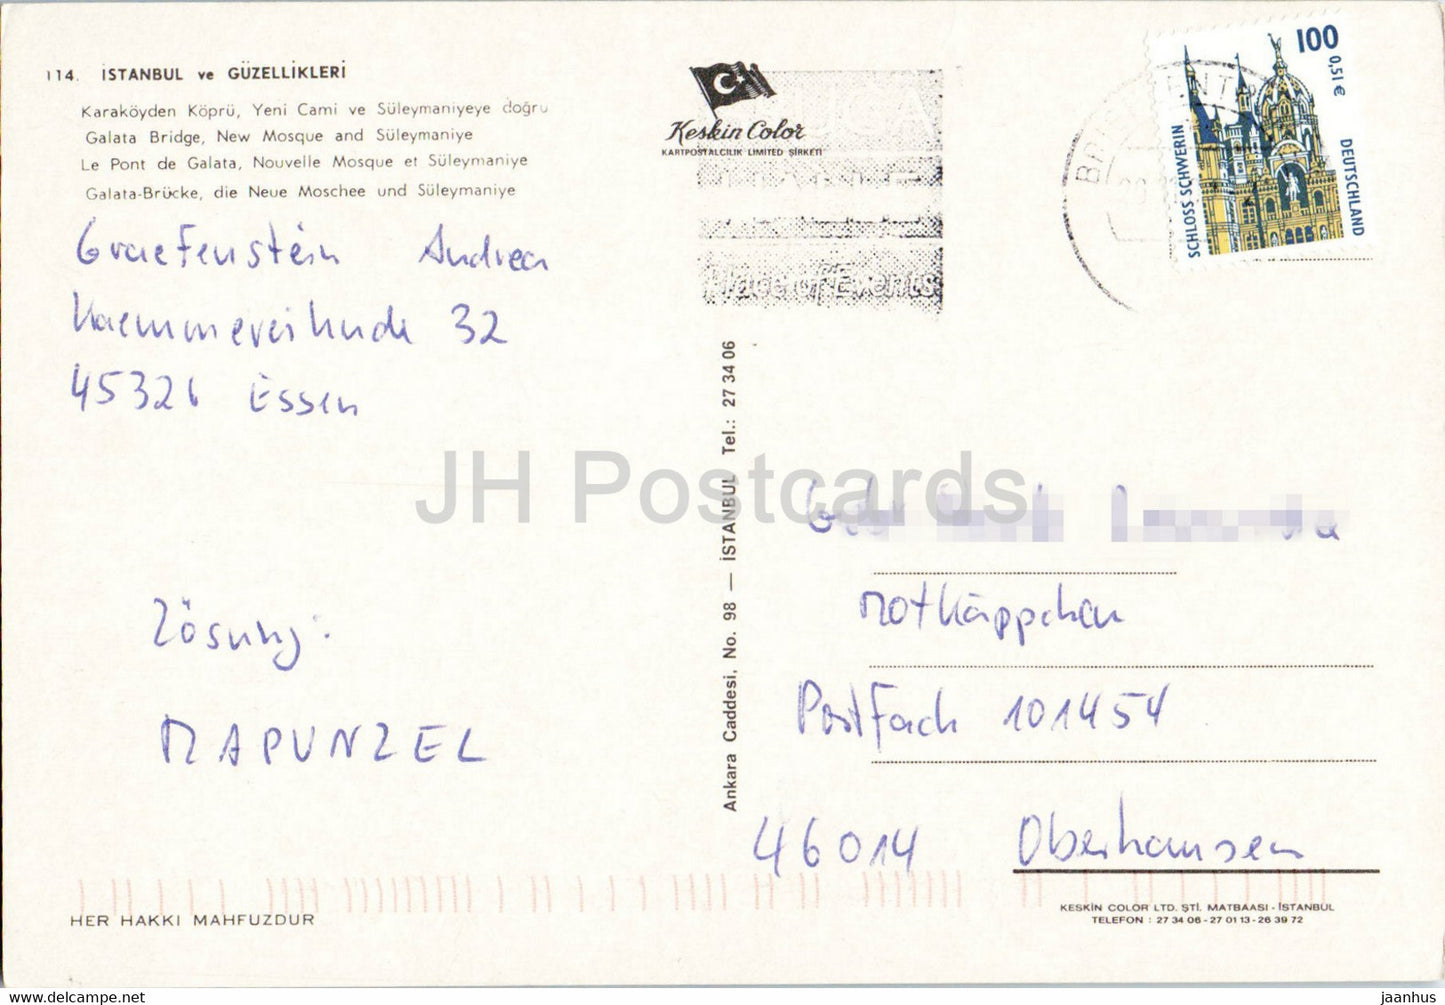 114. İSTANBUL ve GÜZELLİKLERİ
Karaköyden Köprü, Yeni Cami ve Süleymaniyeye doğru
Galata Bridge, New Mosque and Süleymaniye
Le Pont de Galata, Nouvelle Mosque et Süleymaniye
Galata-Brücke, die Neue Moschee und Süleymaniye
Graefenstein Andrea
32
45326 Essen
Lösung:
RAPUNZEL
HER HAKKI MAHFUZDUR
Keskin Color
KARTPOSTALCILIK LIMITED ŞİRKETİ
Place of Events
Ankara Caddesi, No. 98 — İSTANBUL Tel.: 27 34 06
100
0,51 €
SCHLOSS SCHWERIN
DEUTSCHLAND
JH Postcards
Rotkäppchen
Postfach 101454
46014 Oberhausen
KESKİN COLOR LTD. ŞTİ. MATBAASI - İSTANBUL
TELEFON : 27 34 06 - 27 01 13 - 26 39 72
www.delcampe.net
jaanhus